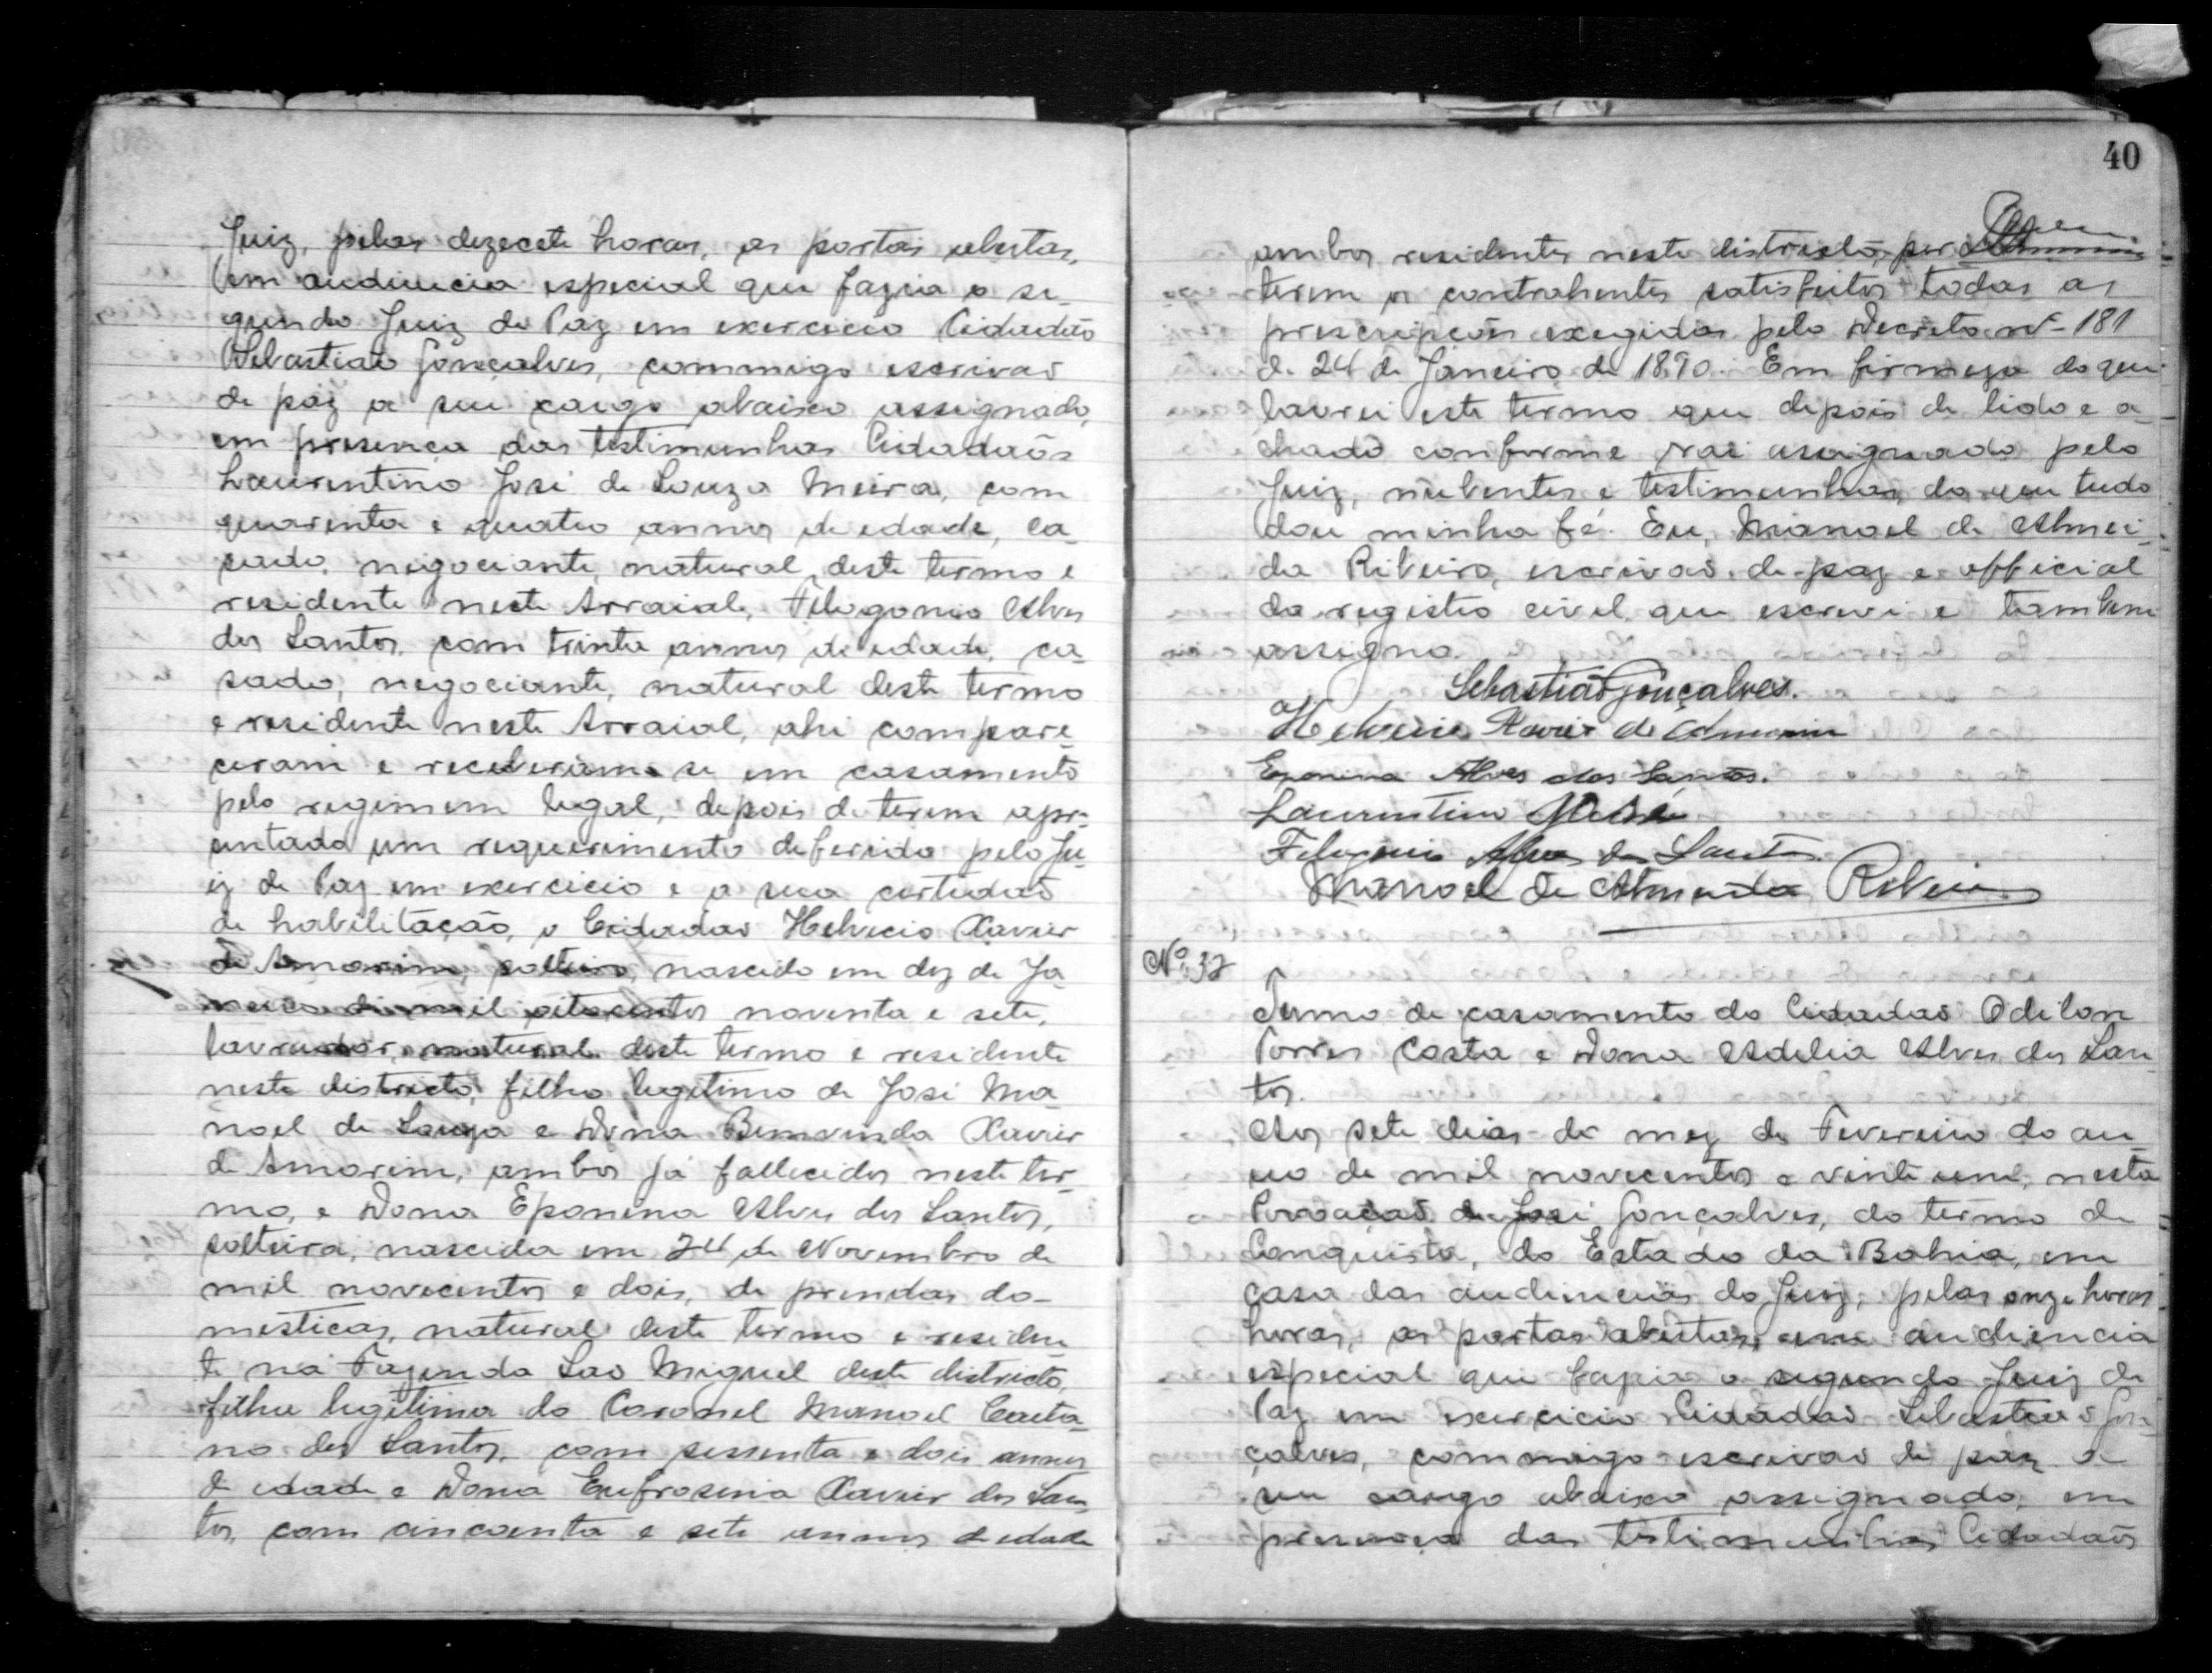 Juiz, pelas dezecete horas, as portas abertas,
em audiencia especial que fazia o se-
gundo Juiz de Paz em exercicio Cidadão
Sebastião Gonçalves, commigo escrivão
de paz a seu cargo abaixo assignado,
em presença das testimunhas Cidadãos
Laurentino José de Souza Meira, com
quarenta e quatro annos de edade, ca-
sado, negociante, natural deste termo e
residente neste Arraial, Filogonio Alves
dos Santos, com trinta annos de edade, ca-
sado, negociante, natural deste termo
e residente neste Arraial, ahi compare-
ceram e receberam-se em casamento
pelo regimem legal, depois de terem apre-
entado um requerimento deferido pelo Ju-
iz de Paz em exercicio e a sua certidão
de habilitação, o Cidadão Helvecio Xavier
de Amorim, solteiro, nascido em dez de Ja-
neiro de mil oitocentos noventa e sete,
lavrador, natural deste termo e residente
neste districto, filho legitimo de José Ma-
noel de Souza e Dona Bemvinda Xavier
de Amorim, ambos já fallecidos neste ter-
mo, e Dona Eponina Alves dos Santos,
solteira, nascida em 24 de Novembro de
mil novecentos e dois, de prendas do-
mesticas, natural deste termo e residen-
te na Fazenda São Miguel deste districto,
filha legitima do Coronel Manoel Caeta-
no dos Santos, com sessenta e dois annos
de edade e Dona Eufrosina Xavier dos San-
tos, com cincoenta e sete annos de edade
40
ambos residentes neste districto, por
terem os contrahentes satisfeitos todas as
prescripções exegidas pelo Decreto nº 181
de 24 de Janeiro de 1890. Em firmeza do que
lavrei este termo que depois de lido e a-
chado conforme vai assignado pelo
Juiz, nubentes e testimunhas, do que tudo
dou minha fé. Eu, Manoel de Almei-
da Ribeiro, escrivão de paz e official
do registro civel, que escrevi e tambem
assigno.
Sebastião Gonçalves.
Helvecio Xavier de Amorim
Eponina Alves dos Santos.
Laurentino José
Filogonio Alves dos Santos.
Manoel de Almeida Ribeiro
Nº 37
Termo de casamento do Cidadão Odilon
Torres Costa e Dona Adelia Alves dos San-
tos.
Aos sete dias do mez de Fevereiro do an-
no de mil novecentos e vinte um, nesta
Povoação de José Gonçalves, do termo de
Conquista, do Estado da Bahia, em
casa das audiencias do Juiz, pelas onze horas
horas, as portas abertas, em audiencia
especial que fazia o segundo Juiz de
Paz em exercicio Cidadão Sebastião Gon-
çalves, commigo escrivão de paz a
seu cargo abaixo assignado, em
presença das testimunhas Cidadãos